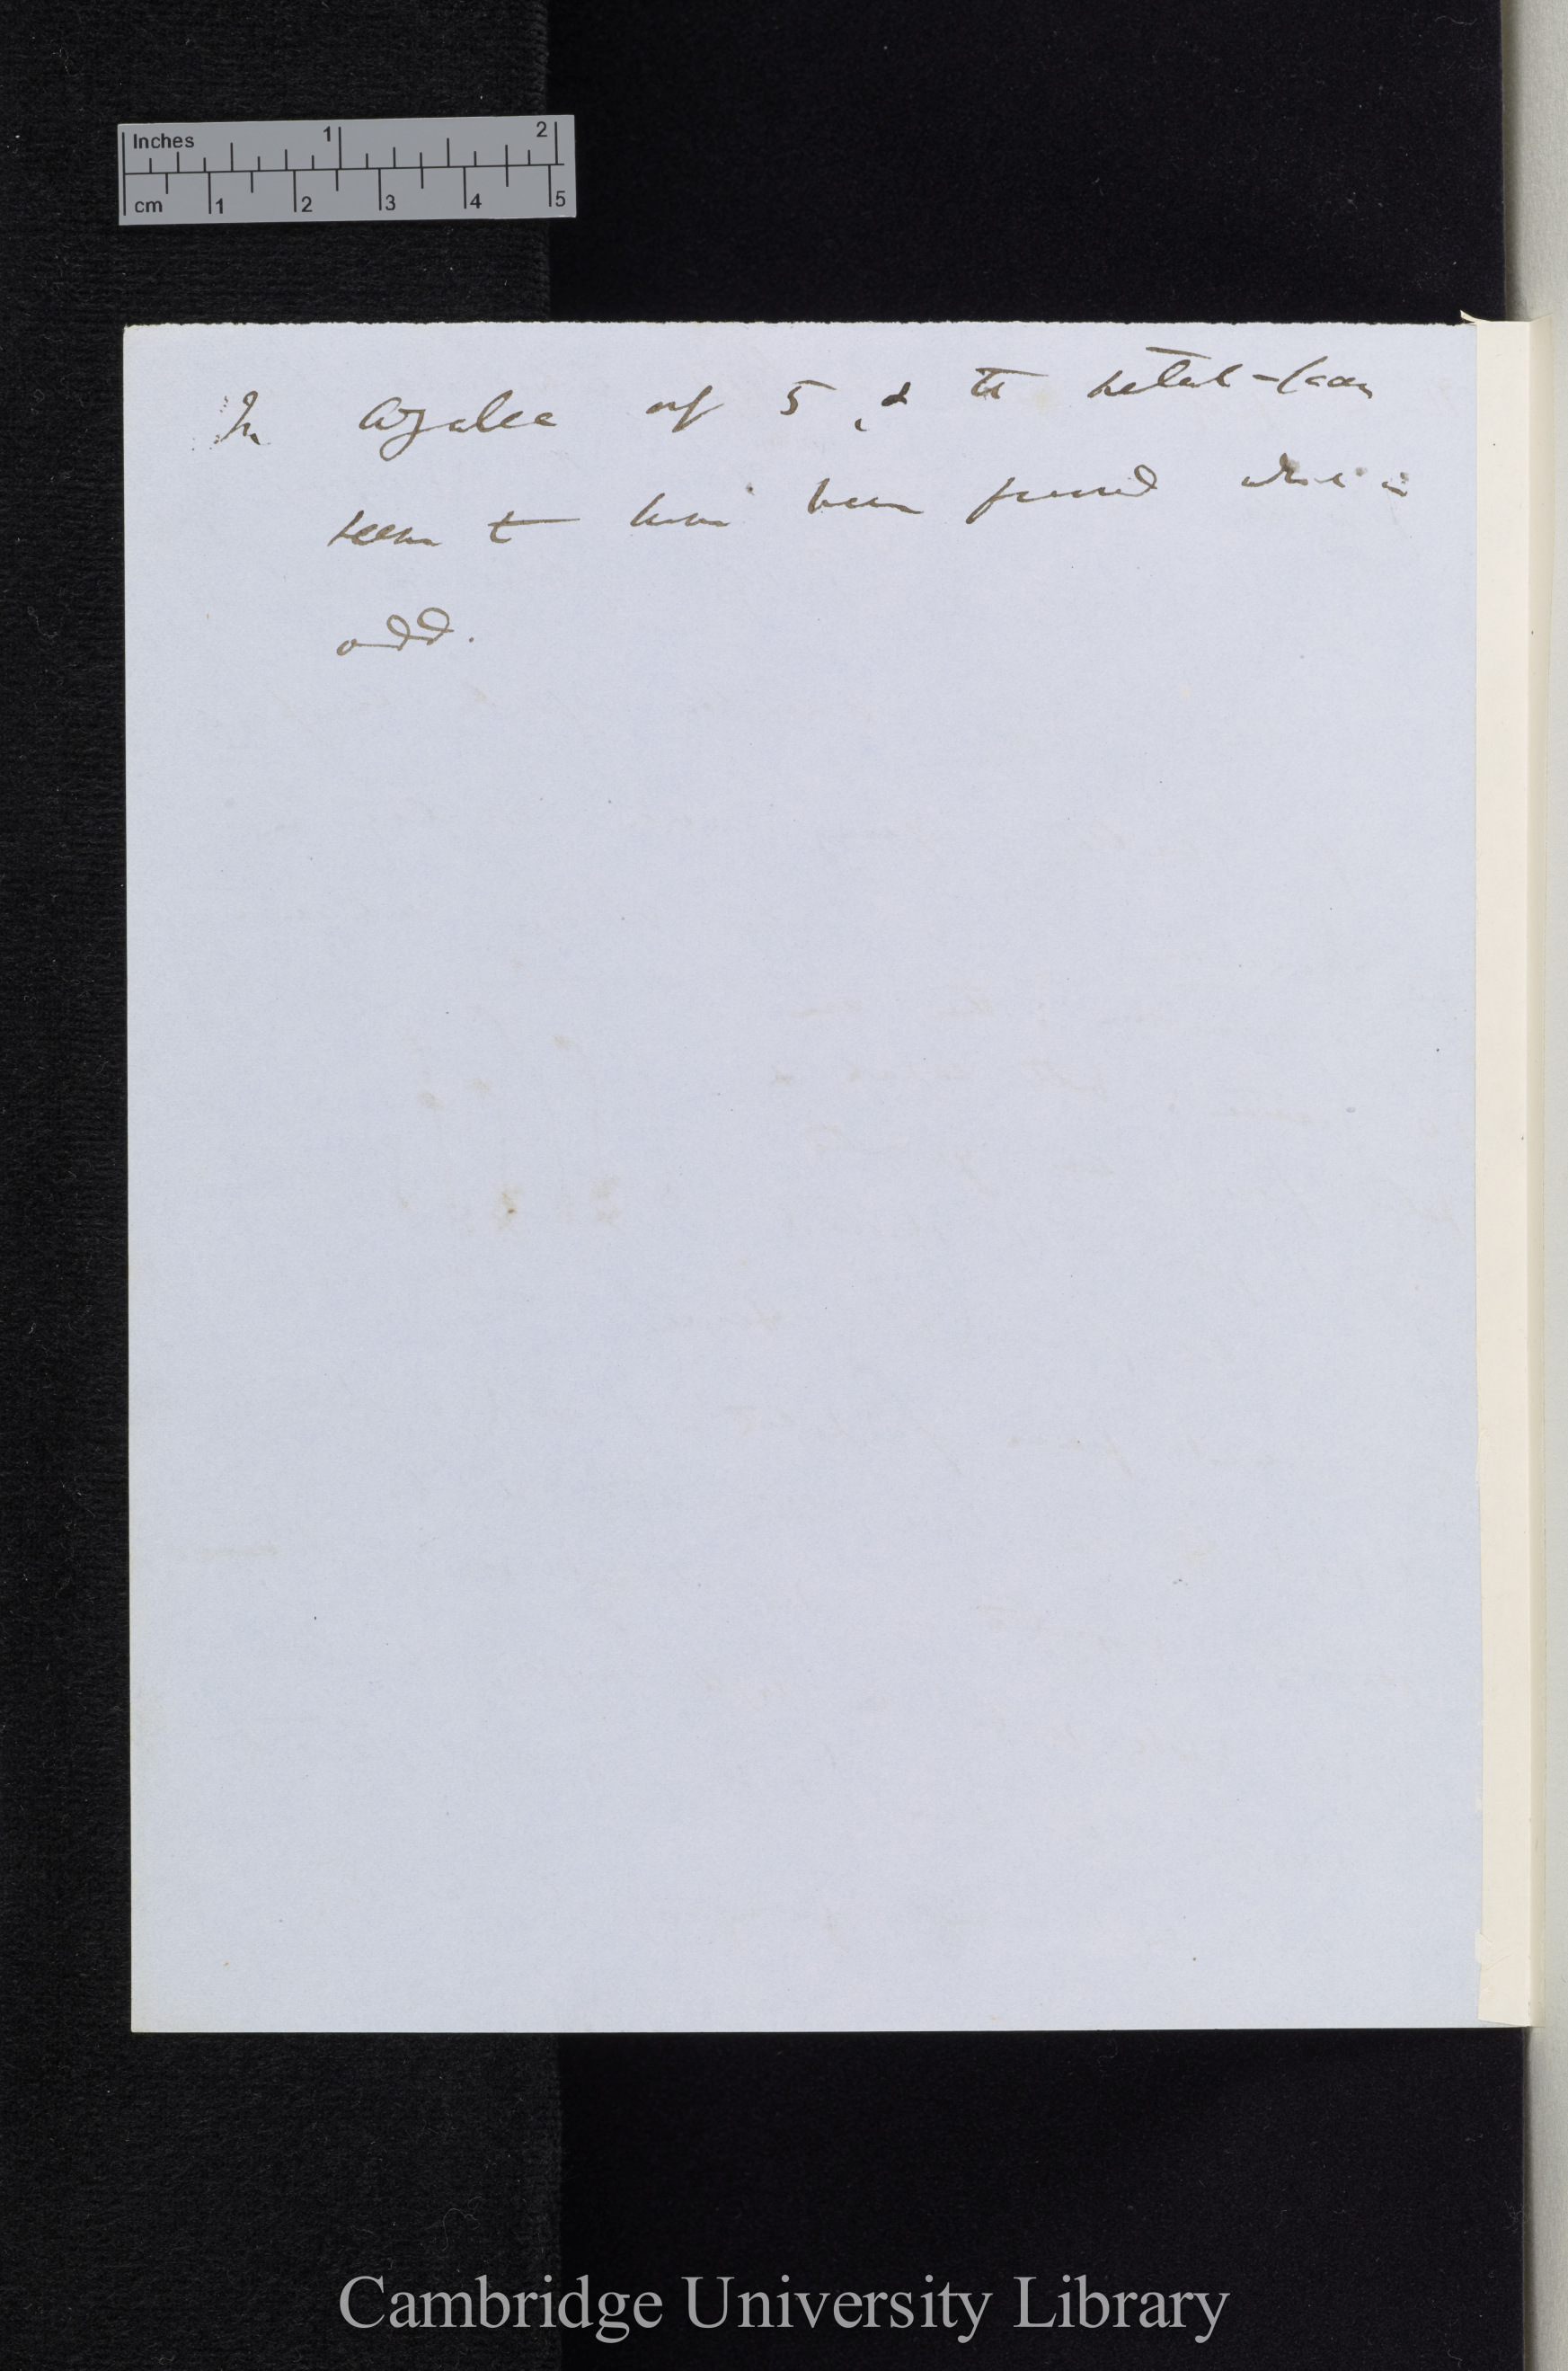 Inches 1 2
cm 1 2 3 4 5
In Azalea only 5, & the petal-
seem to have been fused which is
odd.
Cambridge University Library